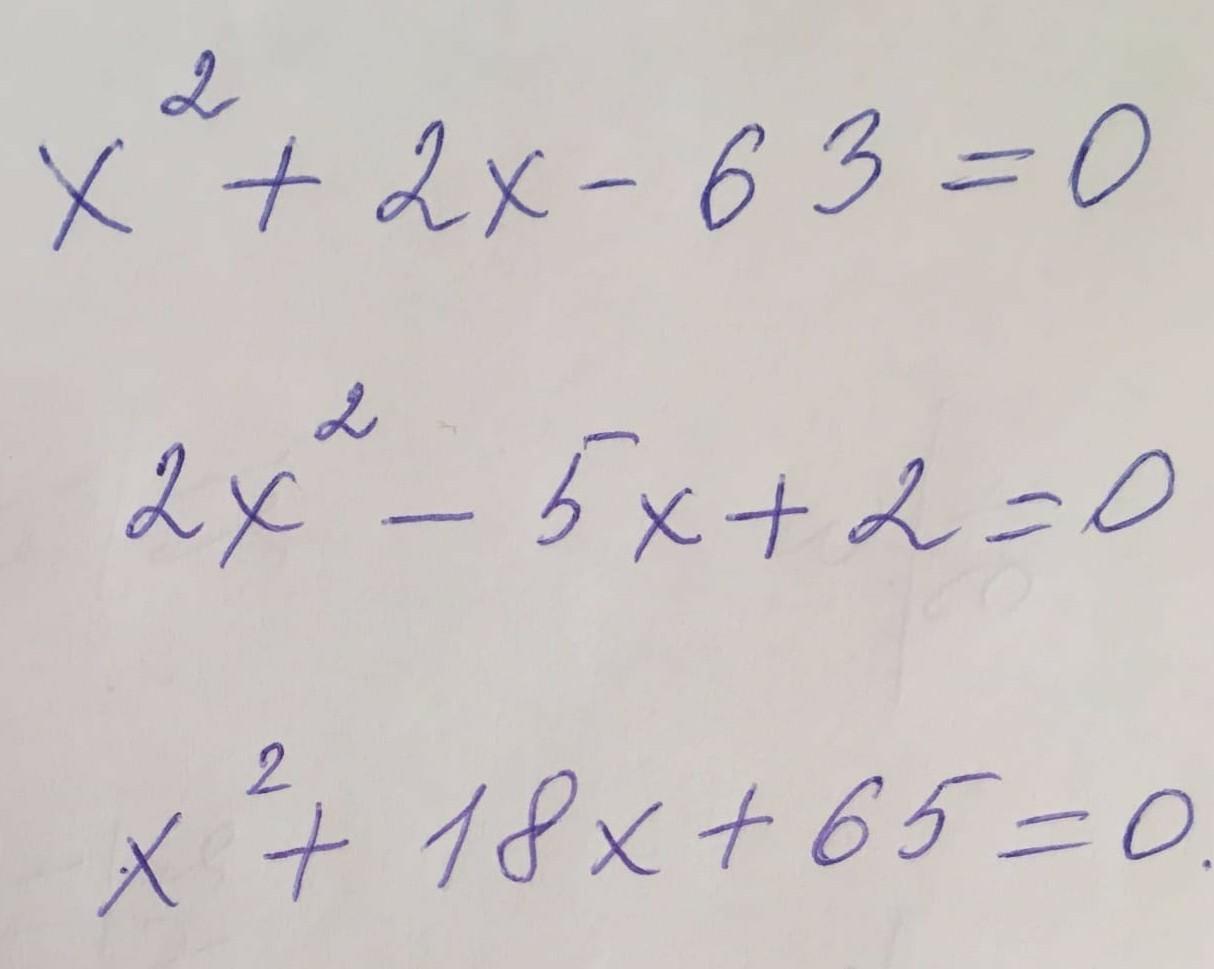 x² + 2x - 63 = 0
2x² - 5x + 2 = 0
x² + 18x + 65 = 0.